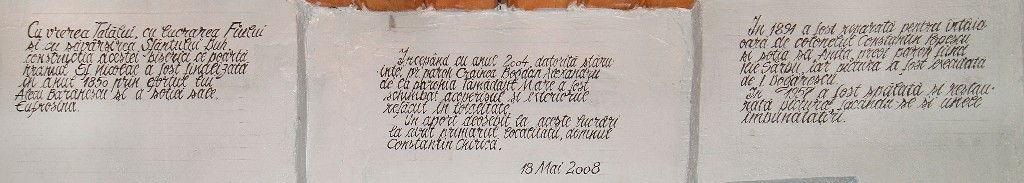 Cu vrerea Tatălui, cu lucrarea Fiului
și cu săvârșirea Sfântului Duh,
construcția acestei biserici ce poartă
hramul Sf. Nicolae a fost finalizată
în anul 1850 prin efortul lui
Alecu Bărănescu și a soției sale,
Eufrosina.
Începând cu anul 2004, datorită stăru
inței pr. paroh Crainea Bogdan Alexandru
de la parohia Tămădău Mare a fost
schimbat acoperișul și exteriorul
refăcut în totalitate.
Un aport deosebit la aceste lucrări
l-a avut primarul localității, domnul
Constantin Chirică.
13 Mai 2008
În 1891 a fost reparată pentru întâia
oară de colonelul Constantin Popescu
și soția sa, Anița, preot paroh fiind
Ilie Sârbu, iar pictura a fost executată
de I. Bogărescu.
În 1957 a fost spălată și restau-
rată pictura, făcându-se și unele
îmbunătățiri.